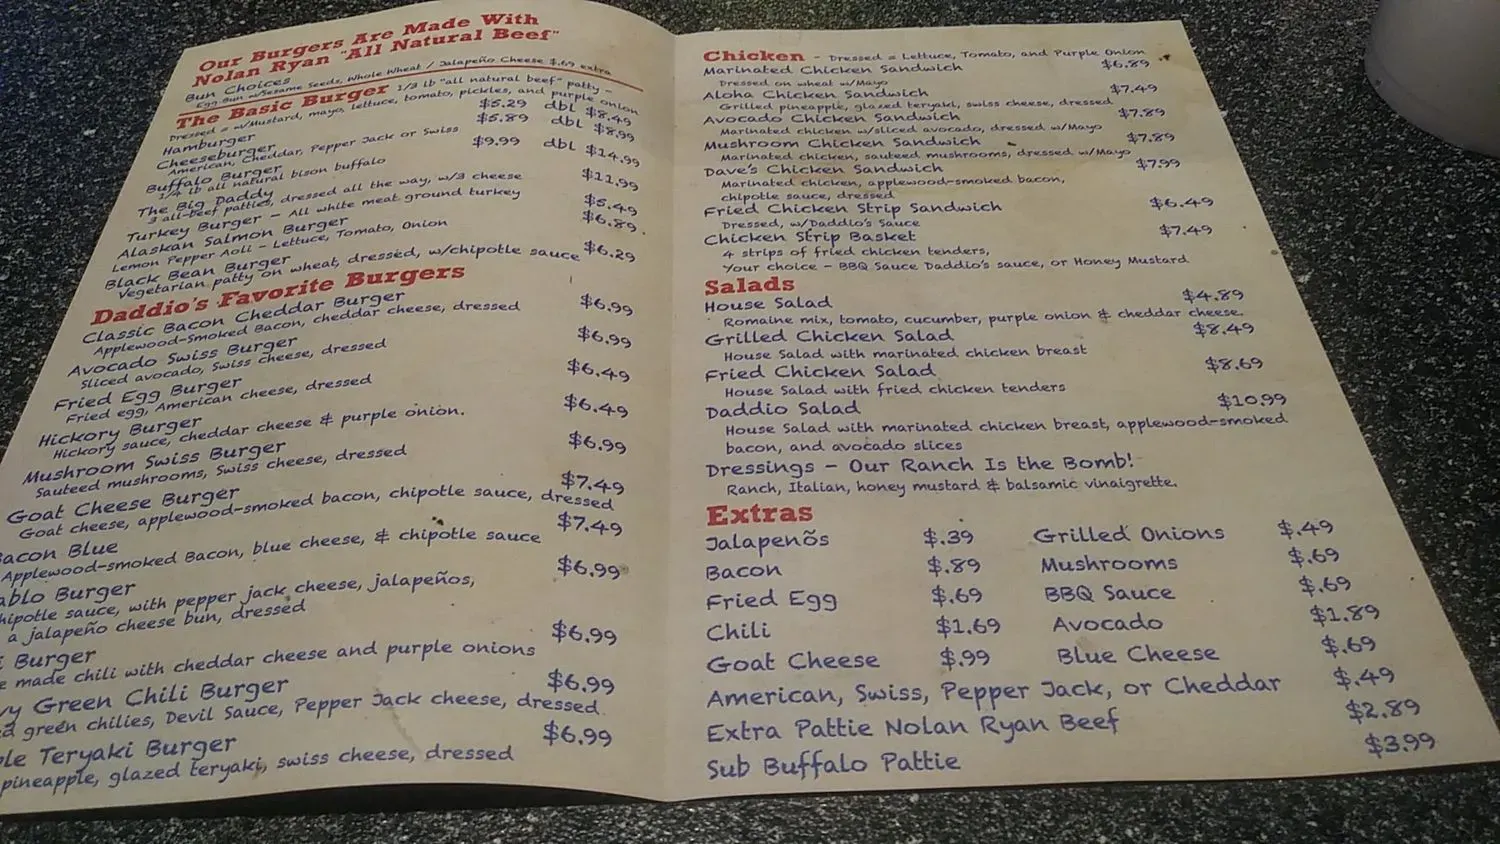 Our Burgers Are Made With
Nolan Ryan "All Natural Beef"
Bun Choices
Egg Bun w/Sesame Seeds, Whole Wheat / Jalapeño Cheese $.69 extra
The Basic Burger 1/3 lb "all natural beef" patty -
Dressed = w/Mustard, mayo, lettuce, tomato, pickles, and purple onion
Hamburger $5.29 dbl $8.49
Cheeseburger $5.89 dbl $8.99
American, Cheddar, Pepper Jack or Swiss
Buffalo Burger $9.99 dbl $14.99
1/4 lb all natural bison buffalo
The Big Daddy $11.99
3 all-beef patties, dressed all the way, w/3 cheese
Turkey Burger - All white meat ground turkey $5.49
Alaskan Salmon Burger $6.89
Lemon Pepper Aoli - Lettuce, Tomato, Onion
Black Bean Burger $6.29
Vegetarian patty on wheat, dressed, w/chipotle sauce
Daddio's Favorite Burgers
Classic Bacon Cheddar Burger $6.99
Applewood-Smoked Bacon, cheddar cheese, dressed
Avocado Swiss Burger $6.99
Sliced avocado, Swiss cheese, dressed
Fried Egg Burger $6.49
Fried egg, American cheese, dressed
Hickory Burger $6.49
Hickory sauce, cheddar cheese & purple onion.
Mushroom Swiss Burger $6.99
Sauteed mushrooms, Swiss cheese, dressed
Goat Cheese Burger $7.49
Goat cheese, applewood-smoked bacon, chipotle sauce, dressed
Bacon Blue $7.49
Applewood-smoked Bacon, blue cheese, & chipotle sauce
ablo Burger $6.99
hipotle sauce, with pepper jack cheese, jalapeños,
a jalapeño cheese bun, dressed
i Burger $6.99
e made chili with cheddar cheese and purple onions
vy Green Chili Burger $6.99
ed green chilies, Devil Sauce, Pepper Jack cheese, dressed.
ple Teryaki Burger $6.99
pineapple, glazed teryaki, swiss cheese, dressed
Chicken - Dressed = Lettuce, Tomato, and Purple Onion
Marinated Chicken Sandwich $6.89
Dressed on wheat w/Mayo
Aloha Chicken Sandwich $7.49
Grilled pineapple, glazed teryaki, swiss cheese, dressed
Avocado Chicken Sandwich $7.89
Marinated chicken w/sliced avocado, dressed w/Mayo
Mushroom Chicken Sandwich $7.89
Marinated chicken, sauteed mushrooms, dressed w/Mayo
Dave's Chicken Sandwich $7.99
Marinated chicken, applewood-smoked bacon,
chipotle sauce, dressed
Fried Chicken Strip Sandwich $6.49
Dressed, w/Daddio's Sauce
Chicken Strip Basket $7.49
4 strips of fried chicken tenders,
Your choice - BBQ Sauce Daddio's sauce, or Honey Mustard
Salads
House Salad $4.89
Romaine mix, tomato, cucumber, purple onion & cheddar cheese.
Grilled Chicken Salad $8.49
House Salad with marinated chicken breast
Fried Chicken Salad $8.69
House Salad with fried chicken tenders
Daddio Salad $10.99
House Salad with marinated chicken breast, applewood-smoked
bacon, and avocado slices
Dressings - Our Ranch Is the Bomb!
Ranch, Italian, honey mustard & balsamic vinaigrette.
Extras
Jalapenõs $.39 Grilled Onions $.49
Bacon $.89 Mushrooms $.69
Fried Egg $.69 BBQ Sauce $.69
Chili $1.69 Avocado $1.89
Goat Cheese $.99 Blue Cheese $.69
American, Swiss, Pepper Jack, or Cheddar $.49
Extra Pattie Nolan Ryan Beef $2.89
Sub Buffalo Pattie $3.99